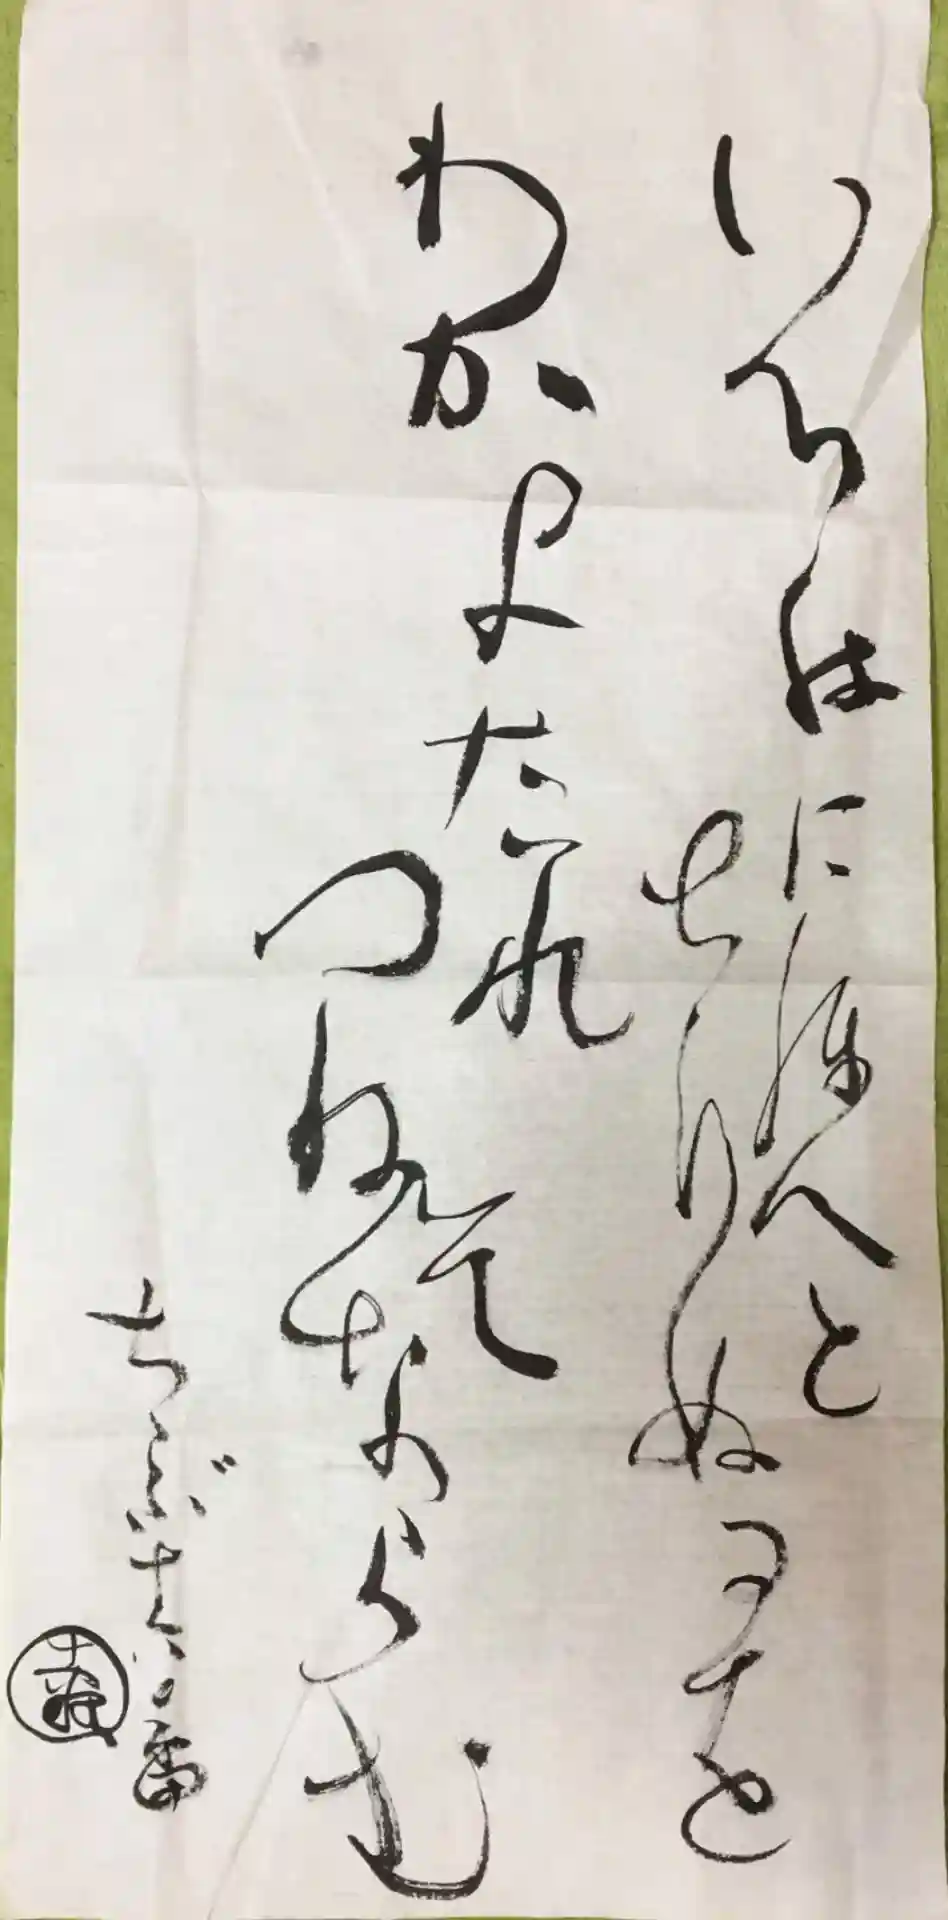 いろはにほへと
ちりぬるを
わかよたれ
そ
つねならむ
ちぶ十六番